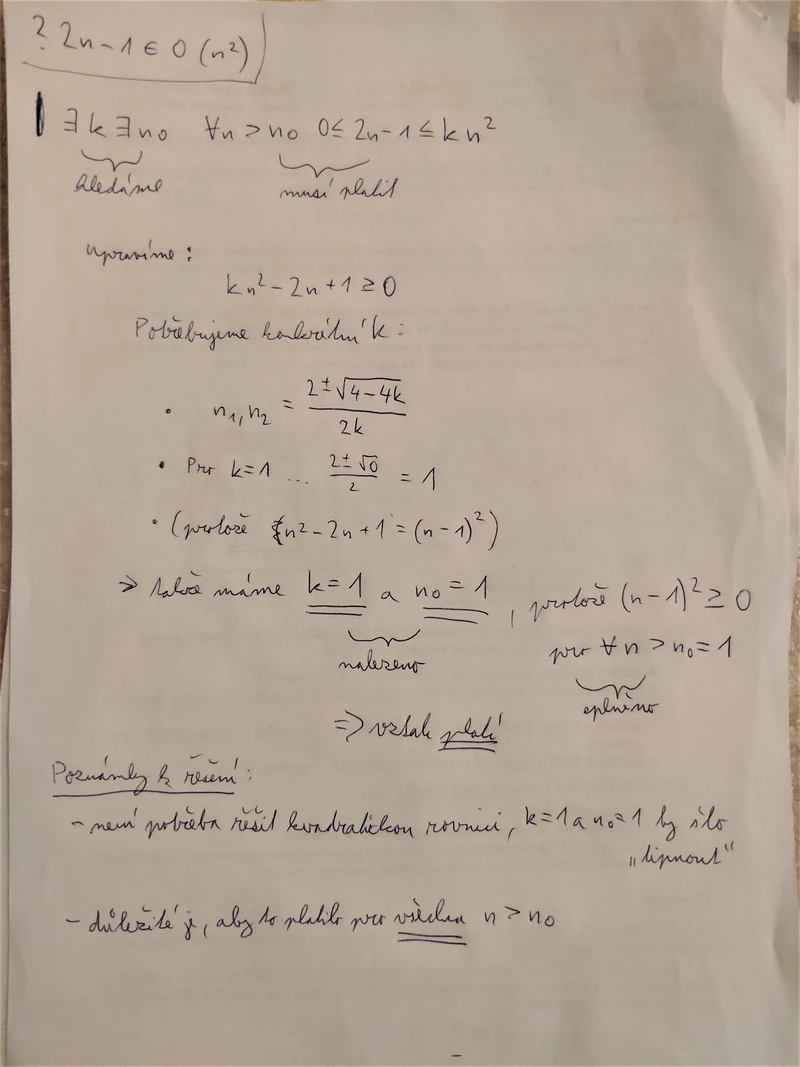 ? 2n-1 ∈ O(n²)
∃k ∃n₀ ∀n > n₀ 0 ≤ 2n-1 ≤ kn²
hledáme musí platit
upravíme:
kn² - 2n + 1 ≥ 0
Potřebujeme konkrétní k:
• n₁,n₂ = (2 ± √(4-4k)) / 2k
• Pro k=1 ... (2 ± √0) / 2 = 1
• (protože n² - 2n + 1 = (n-1)²)
⇒ takže máme k=1 a n₀=1, protože (n-1)² ≥ 0
pro ∀n > n₀ = 1
nalezeno
splněno
⇒ vztah platí
Poznámky k řešení:
- není potřeba řešit kvadratickou rovnici, k=1 a n₀=1 by šlo
„tipnout“
- důležité je, aby to platilo pro všechna n > n₀